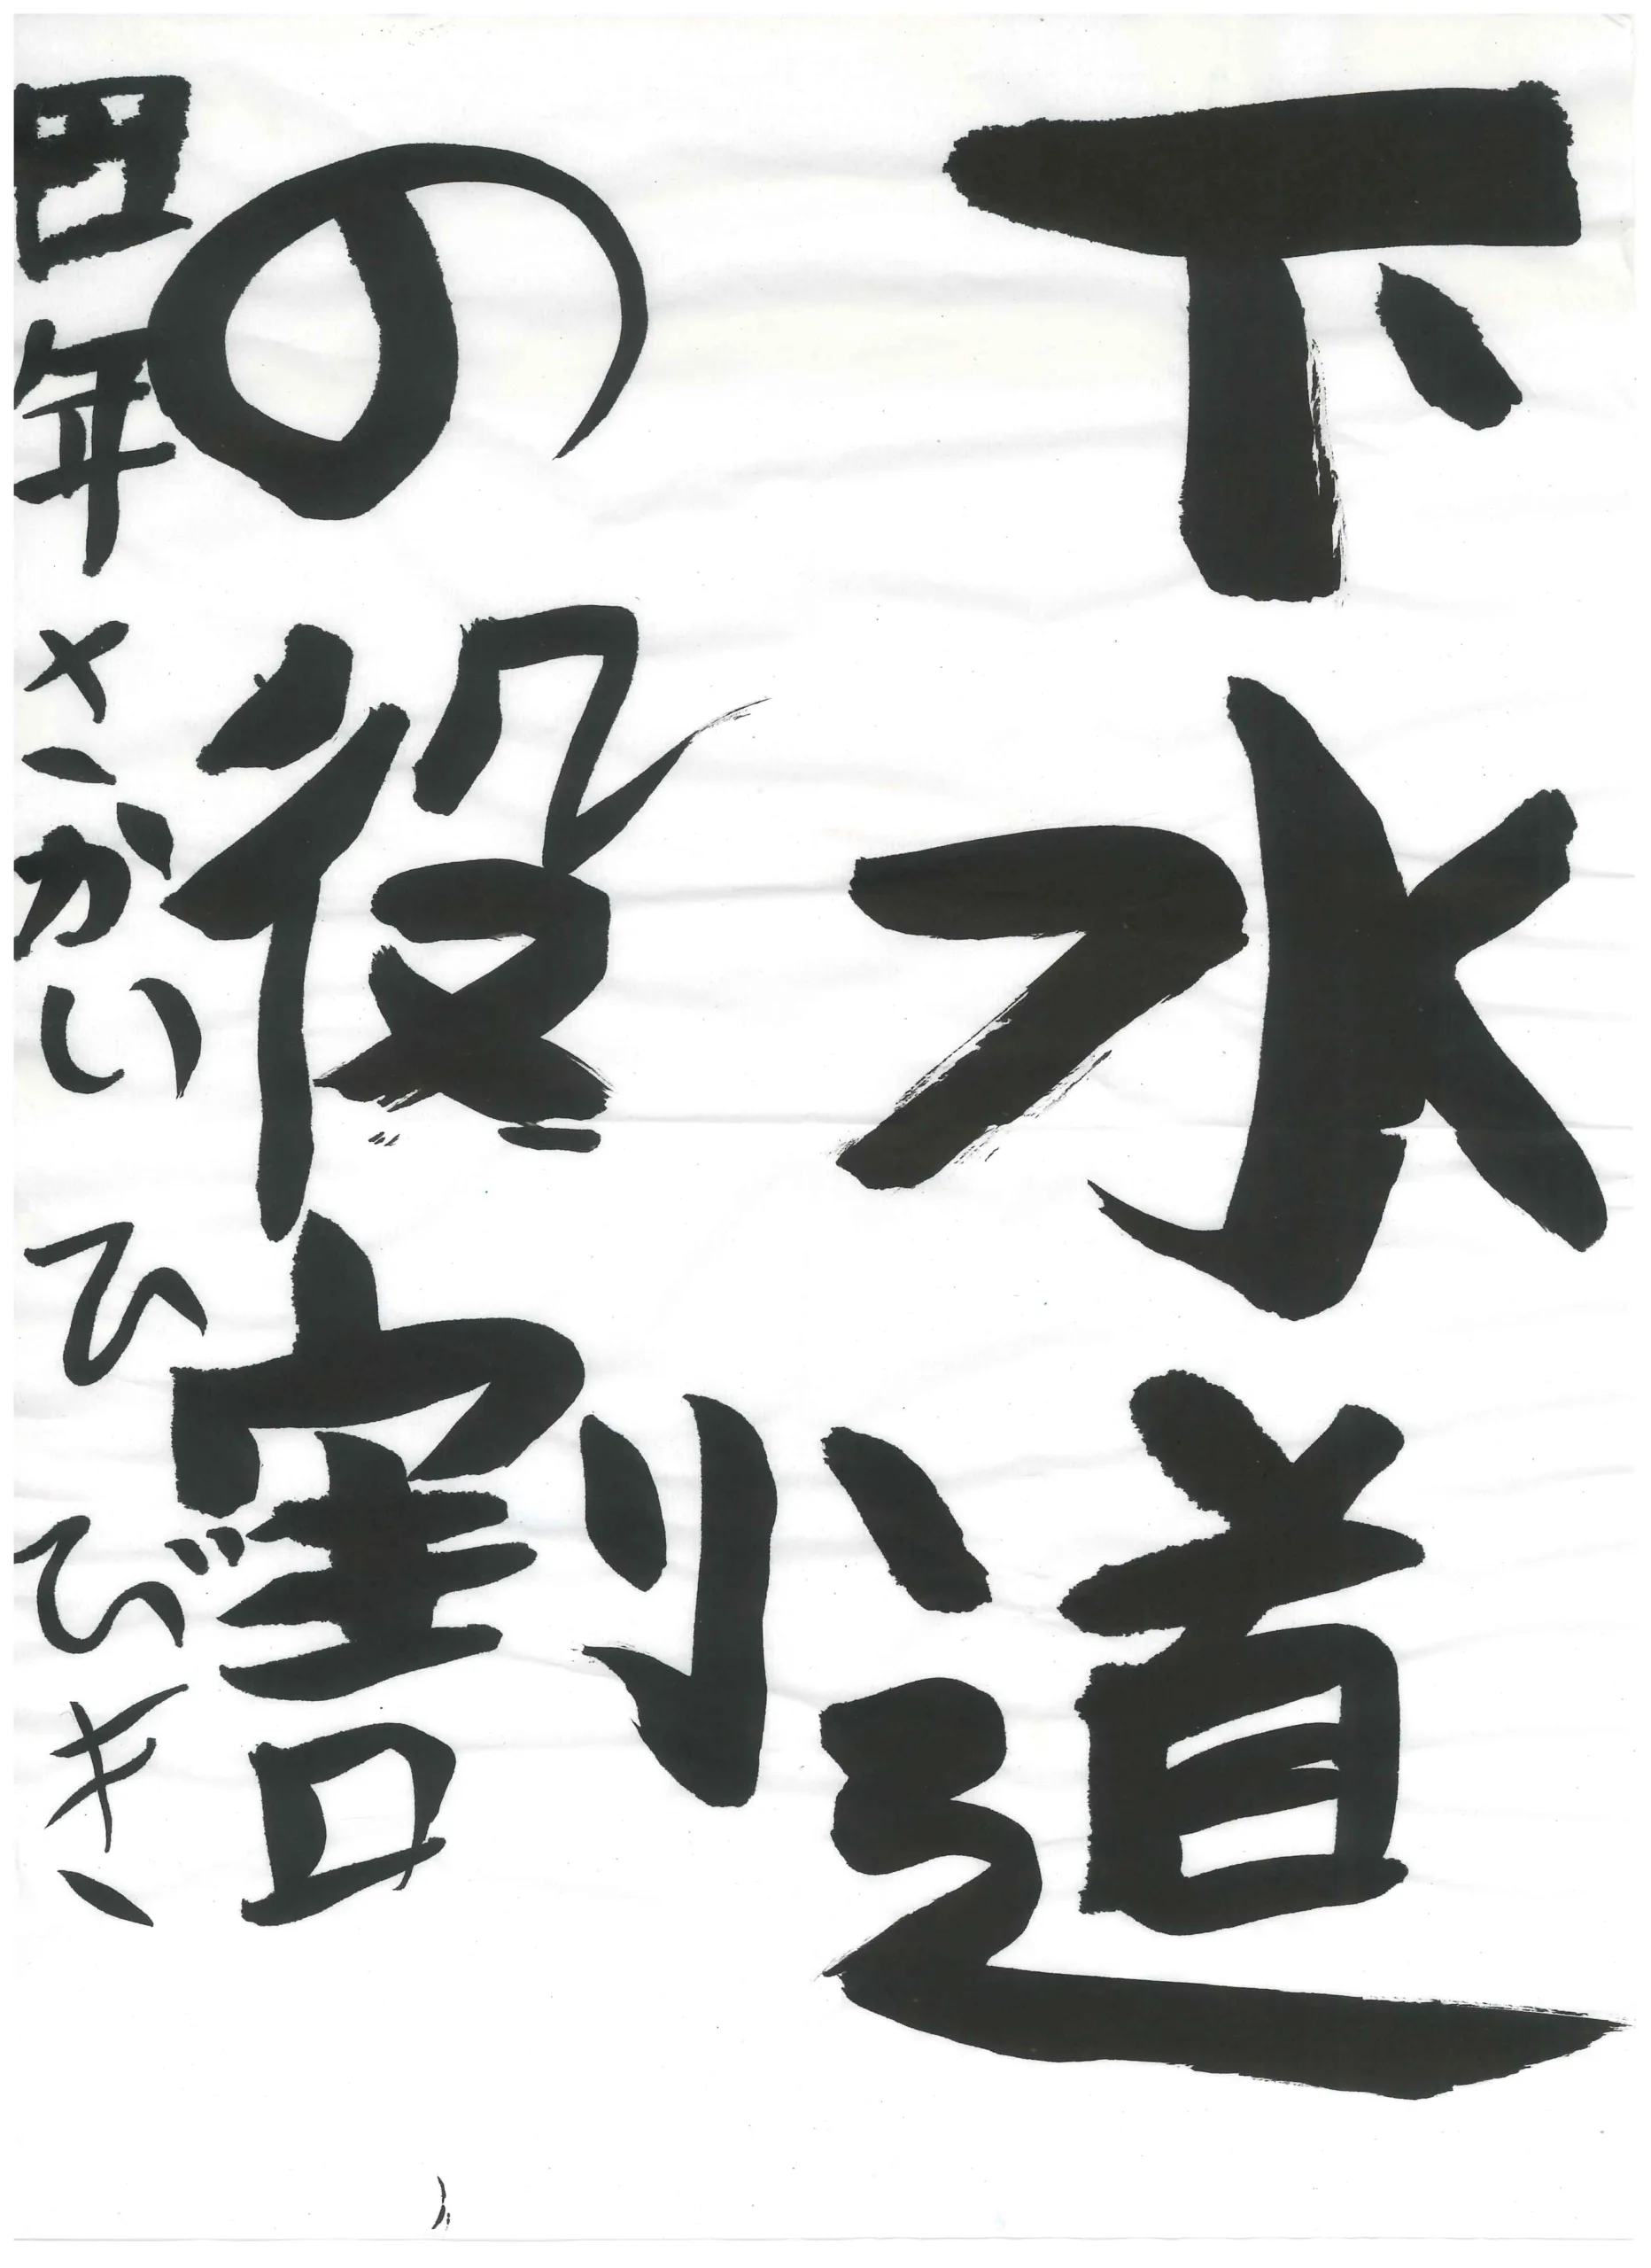 下水道
の役割
四年 さかい ひびき